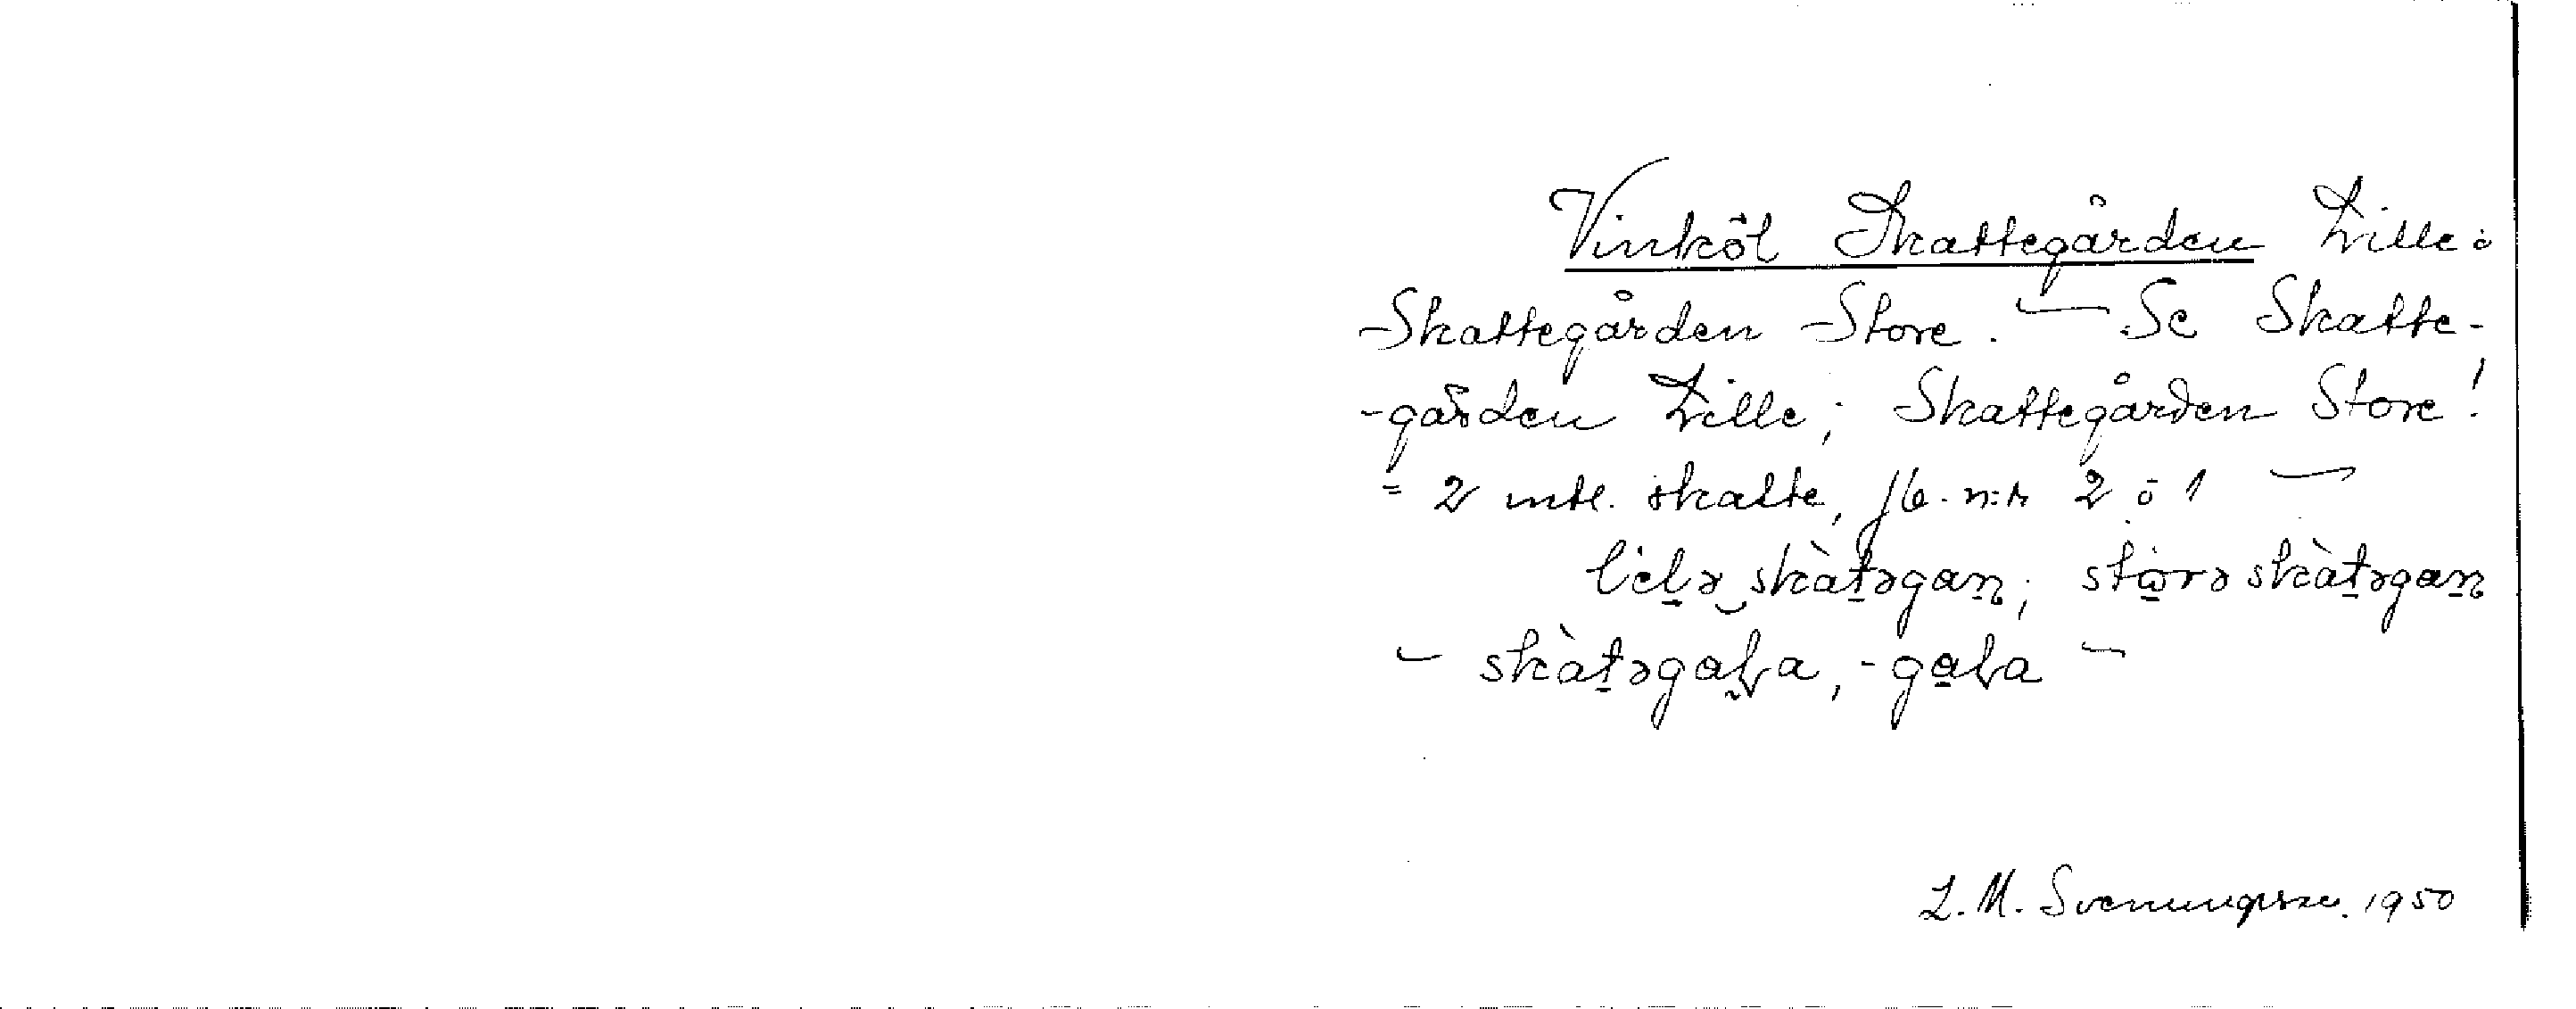 Vinköl Skattegården Lille o
Skattegården Store. — Se Skatte-
-gården Lille; Skattegården Store!
= 2 mtl. skatte, jb. n:r 2 o 1 —
lilə skàtəgan; storə skàtəgan
— skàtəgaɫa, -gaɫa —
L. M. Svenungsson. 1950